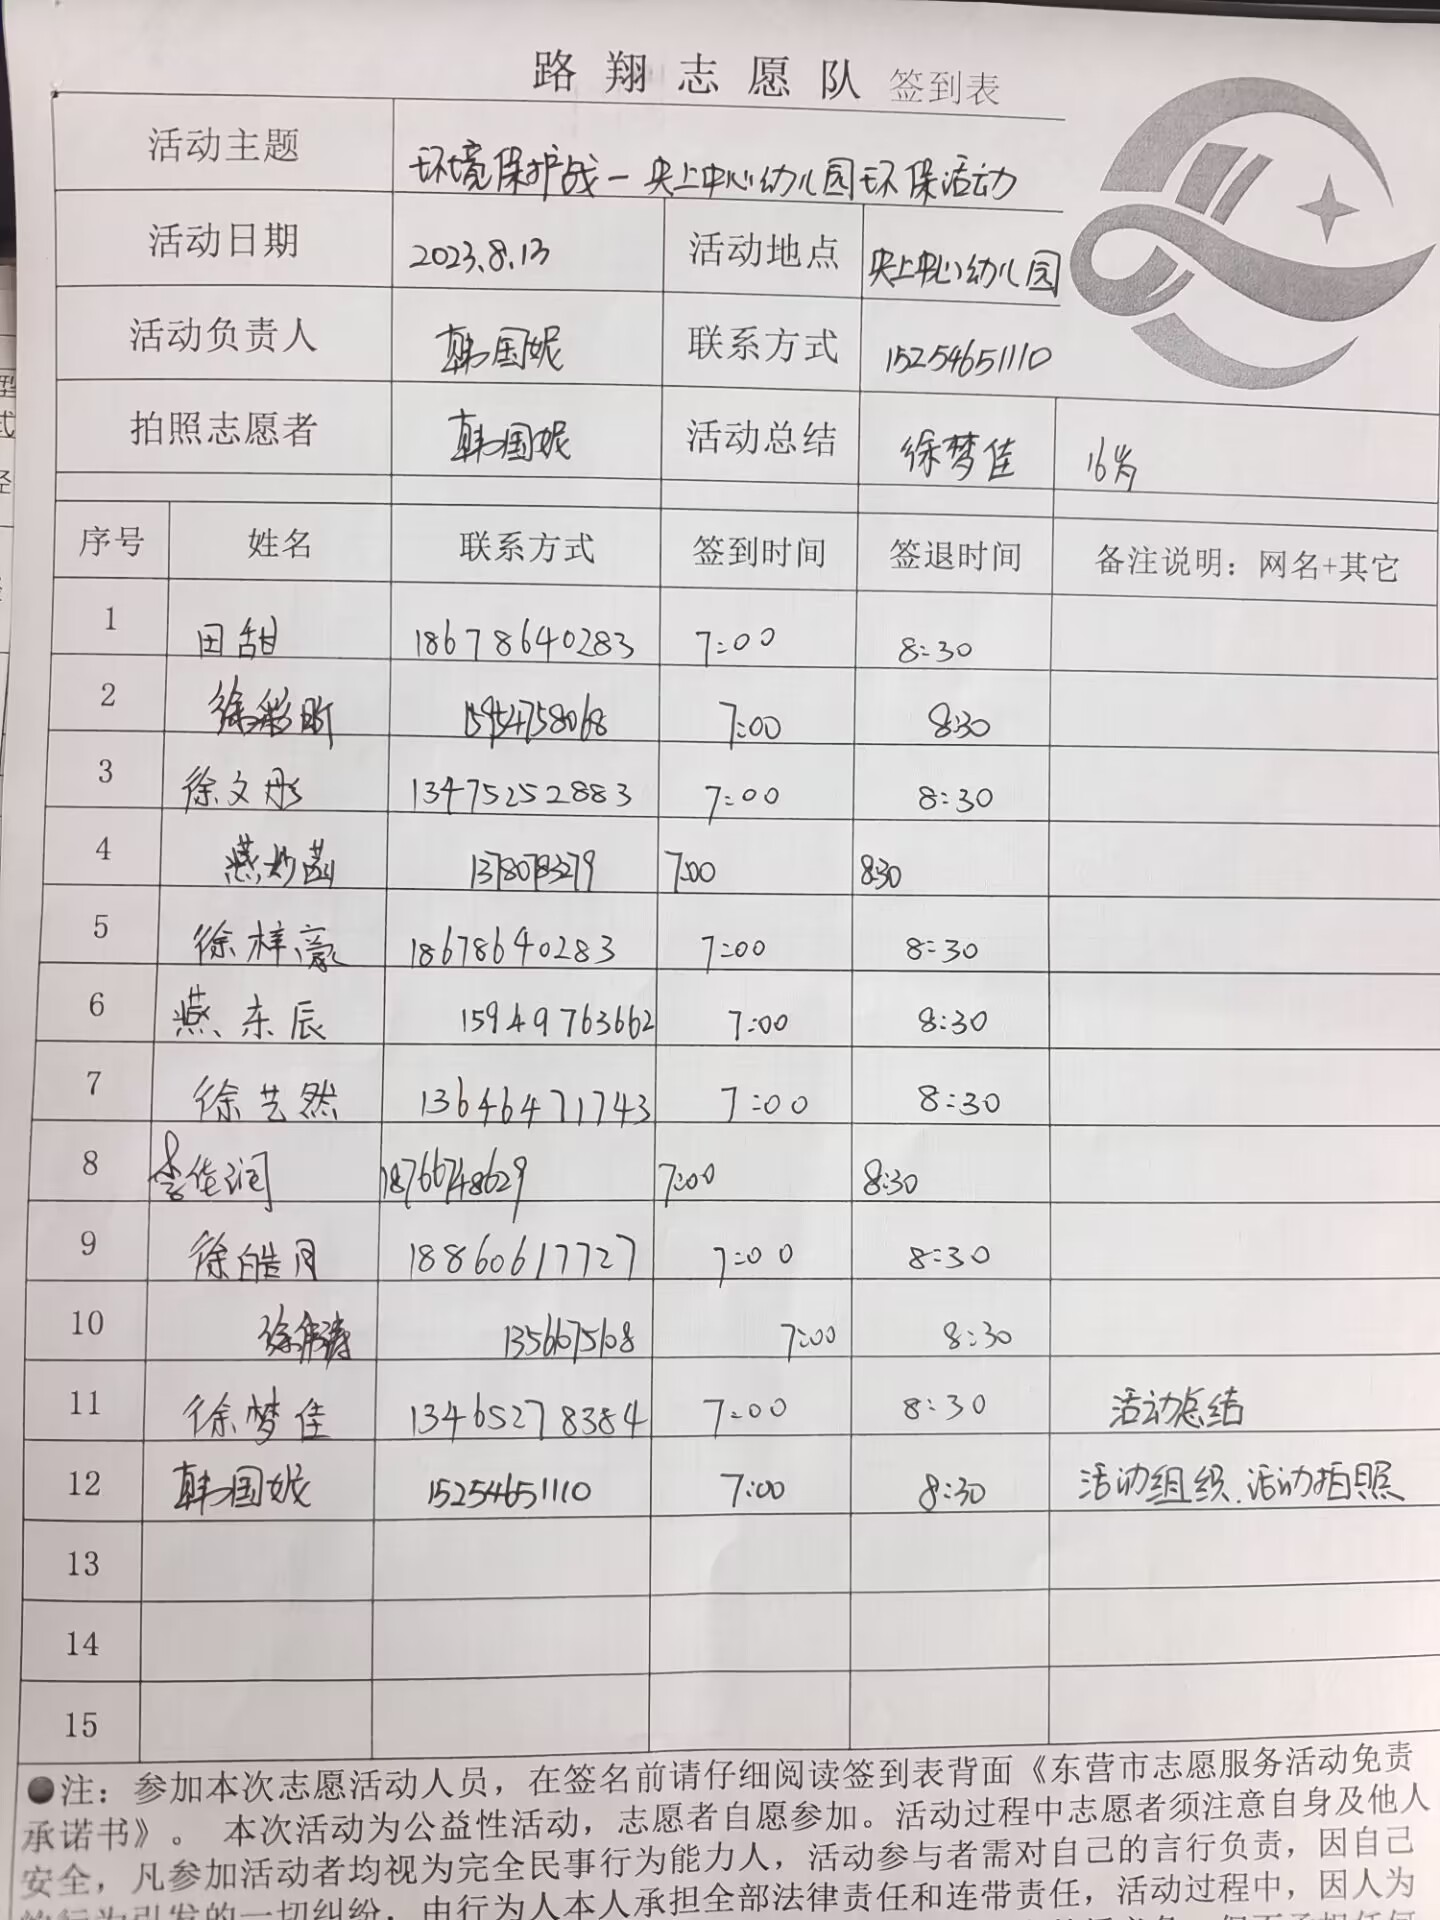 路翔志愿队 签到表
活动主题 环境保护战一央上中心幼儿园环保活动
活动日期 2023.8.13 活动地点 央上中心幼儿园
活动负责人 韩国妮 联系方式 15254651110
拍照志愿者 韩国妮 活动总结 徐梦佳 16岁
序号 姓名 联系方式 签到时间 签退时间 备注说明：网名+其它
1 田甜 18678640283 7:00 8:30
2 徐彩昕 15954758068 7:00 8:30
3 徐文彤 13475252883 7:00 8:30
4 燕妙菡 7:00 8:30
5 徐梓豪 18678640283 7:00 8:30
6 燕东辰 15949763662 7:00 8:30
7 徐艺然 13646471743 7:00 8:30
8 李佳润 18766748629 7:00 8:30
9 徐皓月 18860617727 7:00 8:30
10 7:00 8:30
11 徐梦佳 13465278384 7:00 8:30 活动总结
12 韩国妮 15254651110 7:00 8:30 活动组织.活动拍照
13
14
15
●注：参加本次志愿活动人员，在签名前请仔细阅读签到表背面《东营市志愿服务活动免责
承诺书》。 本次活动为公益性活动，志愿者自愿参加。活动过程中志愿者须注意自身及他人
安全，凡参加活动者均视为完全民事行为能力人，活动参与者需对自己的言行负责，因自己
的行为引发的一切纠纷，由行为人本人承担全部法律责任和连带责任，活动过程中，因人为